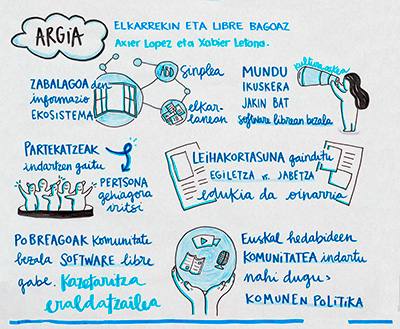 ARGIA
ELKARREKIN ETA LIBRE BAGOAZ
Axier Lopez eta Xabier Letona.
ZABALAGOA den
informazio
EKOSISTEMA
Sinplea
elkar-
lanean
MUNDU
IKUSKERA
JAKIN BAT
software librean bezala
kultura askea
PARTEKATZEAK
indartzen gaitu
PERTSONA
gehiagora
iritsi
LEIHAKORTASUNA gainditu
EGILETZA vs. JABETZA
edukia da oinarria
POBREAGOAK komunitate
bezala SOFTWARE libre
gabe. Kazetaritza
eraldatzailea
Euskal hedabideen
KOMUNITATEA indartu
nahi dugu >
KOMUNEN POLITIKA